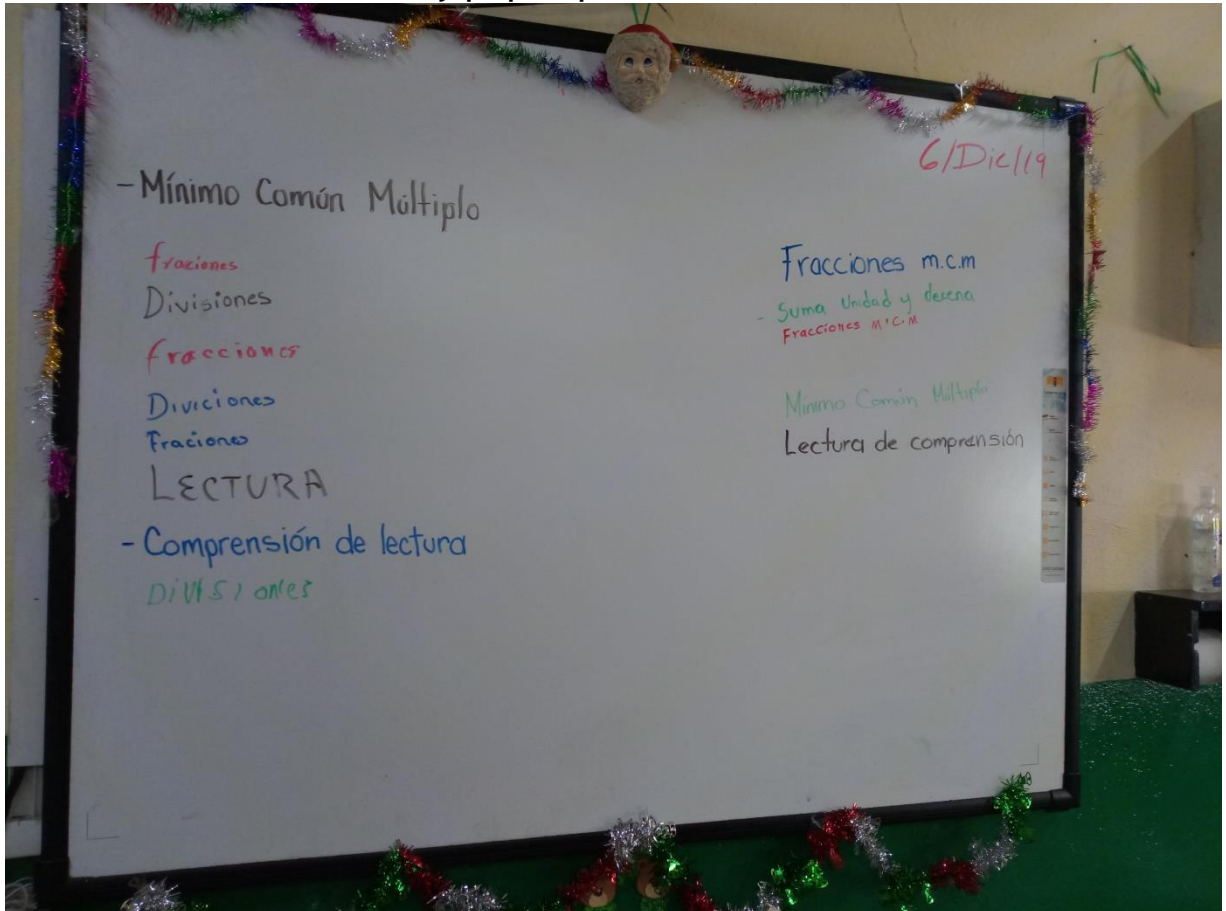 6/Dic/19
- Mínimo Común Múltiplo
fraziones
Divisiones
fracciones
Diviciones
Fraciones
LECTURA
- Comprensión de lectura
DiVISIones
Fracciones m.c.m
- Suma Unidad y decena
Fracciones M.C.M
Mínimo Común Múltiplo
Lectura de comprensión